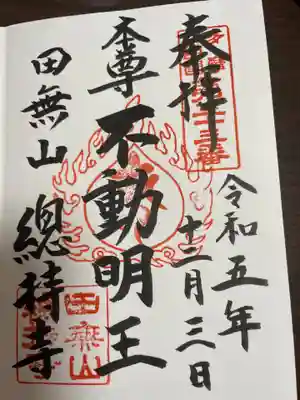 奉拝
令和五年
十二月三日
本尊
不動明王
田無山
總持寺